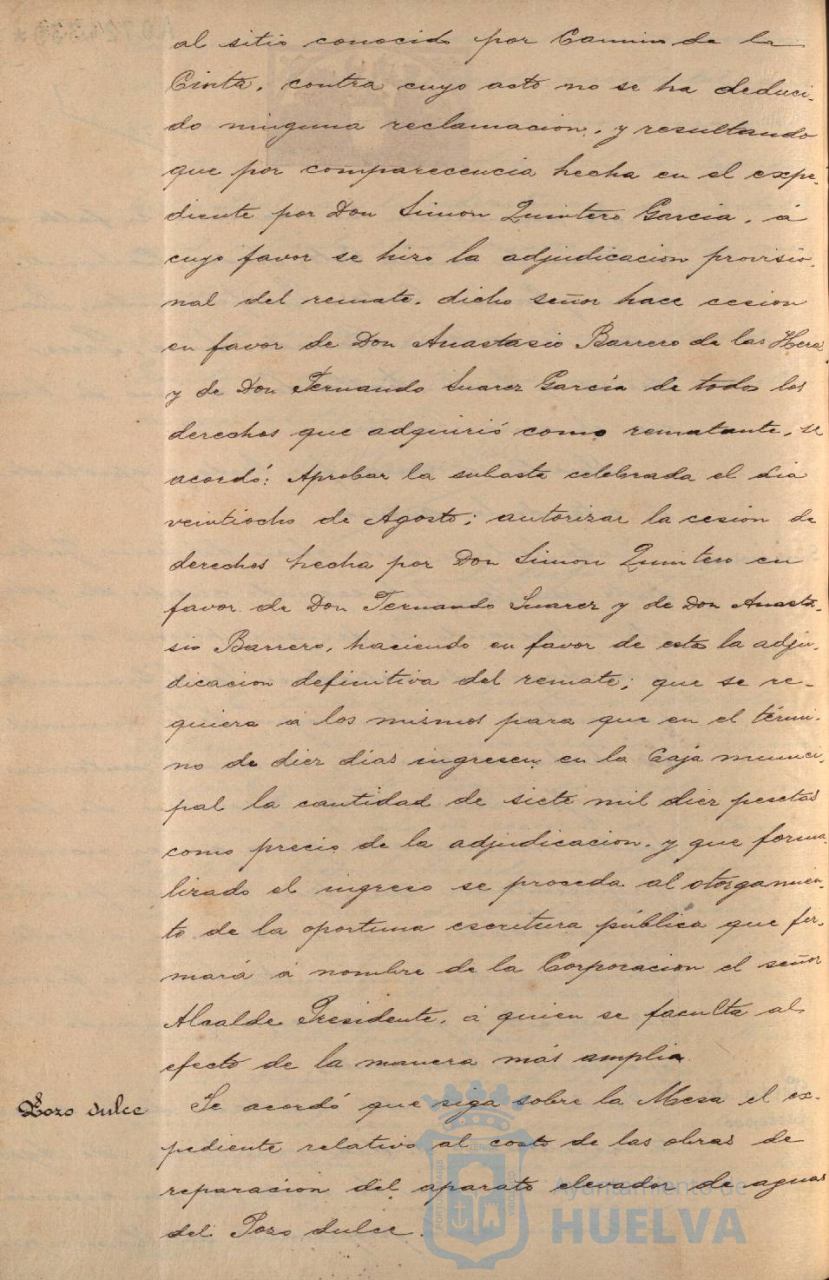 al sitio conocido por Camino de la
Cinta, contra cuyo acto no se ha deduci-
do ninguna reclamacion, y resultando
que por comparecencia hecha en el expe-
diente por Don Simon Quintero Garcia, á
cuyo favor se hizo la adjudicacion provisio-
nal del remate, dicho señor hace cesion
en favor de Don Anastasio Barrero de las Heras
y de Don Fernando Suarez García de todos los
derechos que adquirió como rematante, se
acordó: Aprobar la subasta celebrada el dia
veintiocho de Agosto; autorizar la cesion de
derechos hecha por Don Simon Quintero en
favor de Don Fernando Suarez y de Don Anasta-
sio Barrero, haciendo en favor de estos la adju-
dicacion definitiva del remate; que se re-
quiera á los mismos para que en el térmi-
no de diez días ingresen en la Caja munici-
pal la cantidad de siete mil diez pesetas
como precio de la adjudicacion, y que forma-
lizado el ingreso se proceda al otorgamien-
to de la oportuna escritura pública que fir-
mará á nombre de la Corporacion el señor
Alcalde Presidente, á quien se faculta al
efecto de la manera más amplia
Pozo dulce
Se acordó que siga sobre la Mesa el ex-
pediente relativo al costo de las obras de
reparacion del aparato elevador de aguas
del Pozo dulce.
Ayuntamiento de
HUELVA